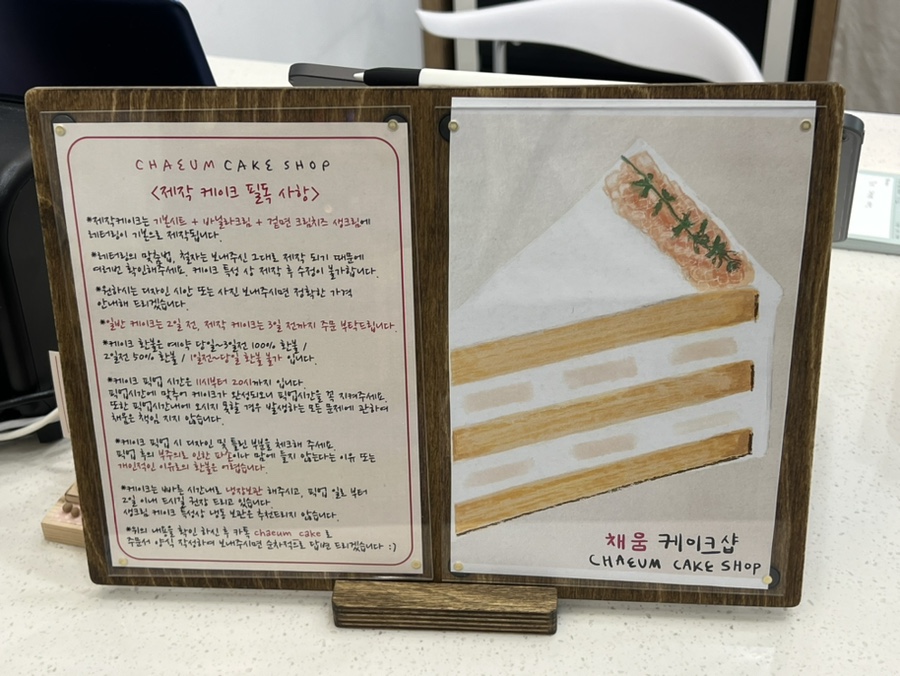 CHAEUM CAKE SHOP
<제작 케이크 필독 사항>
*제작케이크는 기본시트 + 바닐라크림 + 겉면 크림치즈 생크림에
레터링이 기본으로 제작됩니다.
*레터링의 맞춤법, 철자는 보내주신 그대로 제작 되기 때문에
여러번 확인해주세요. 케이크 특성 상 제작 후 수정이 불가합니다.
*원하시는 디자인 시안 또는 사진 보내주시면 정확한 가격
안내해 드리겠습니다.
*일반 케이크는 2일 전, 제작 케이크는 3일 전까지 주문 부탁드립니다.
*케이크 환불은 예약 당일~3일전 100% 환불 /
2일전 50% 환불 / 1일전~당일 환불 불가 입니다.
*케이크 픽업 시간은 11시부터 20시까지 입니다.
픽업시간에 맞추어 케이크가 완성되오니 픽업시간을 꼭 지켜주세요.
또한 픽업시간내에 오시지 못할 경우 발생하는 모든 문제에 관하여
채움은 책임 지지 않습니다.
*케이크 픽업 시 디자인 및 틀린 부분을 체크해 주세요.
픽업 후의 부주의로 인한 파손이나 맘에 들지 않는다는 이유 또는
개인적인 이유로의 환불은 어렵습니다.
*케이크는 빠른 시간내로 냉장보관 해주시고, 픽업 일로 부터
2일 이내 드시길 권장 드리고 있습니다.
생크림 케이크 특성상 냉동 보관은 추천드리지 않습니다.
*위의 내용을 확인 하신 후 카톡 chaeum_cake 로
주문서 양식 작성하여 보내주시면 순차적으로 답변 드리겠습니다 :)
채움 케이크샵
CHAEUM CAKE SHOP